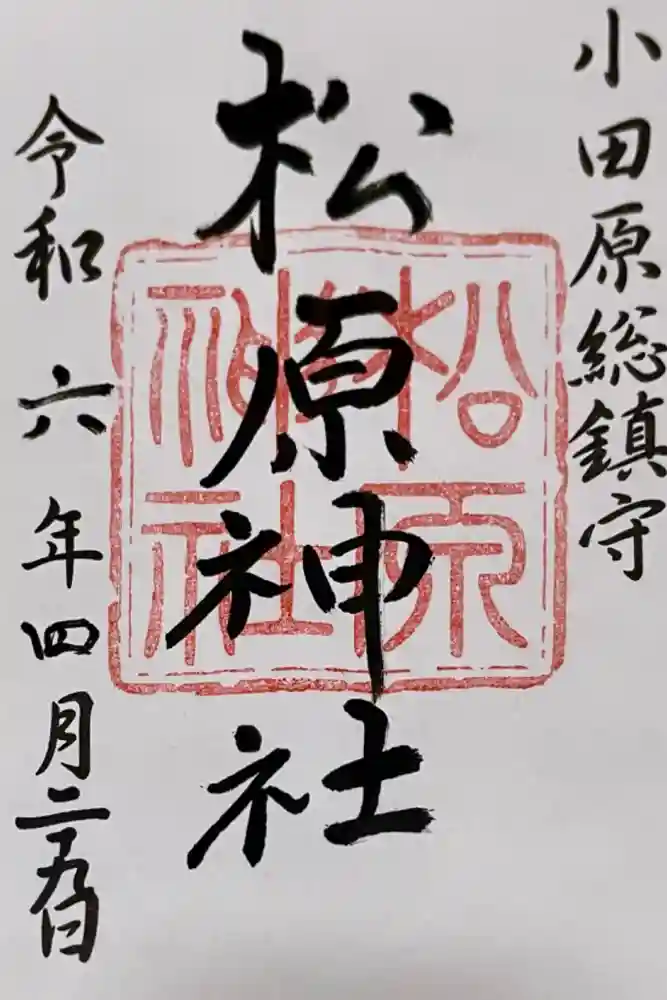 小田原総鎮守
松原神社
松原
神社
令和六年四月二十九日